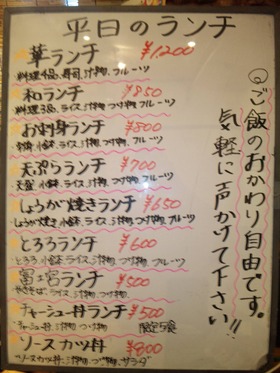 平日のランチ
華ランチ ¥1200
料理4品、寿司、汁物、フルーツ
和ランチ ¥850
料理3品、ライス、汁物、つけ物、フルーツ
お刺身ランチ ¥800
小鉢、ライス、汁物、つけ物、フルーツ
天ぷらランチ ¥700
ライス、汁物、つけ物、フルーツ
しょうが焼きランチ ¥650
しょうが焼き、小鉢、ライス、汁物、つけ物、フルーツ
とろろランチ ¥600
とろろ、小鉢、ライス、汁物、つけ物、フルーツ
富士宮ランチ ¥500
やきそば、ライス、汁物、つけ物
チャーシュー丼ランチ ¥500
チャーシュー丼、汁物、つけ物 限定5食
ソースカツ丼 ¥800
ソースカツ丼、汁物、つけ物、サラダ
ご飯のおかわり自由です。
気軽に声かけて下さい!!